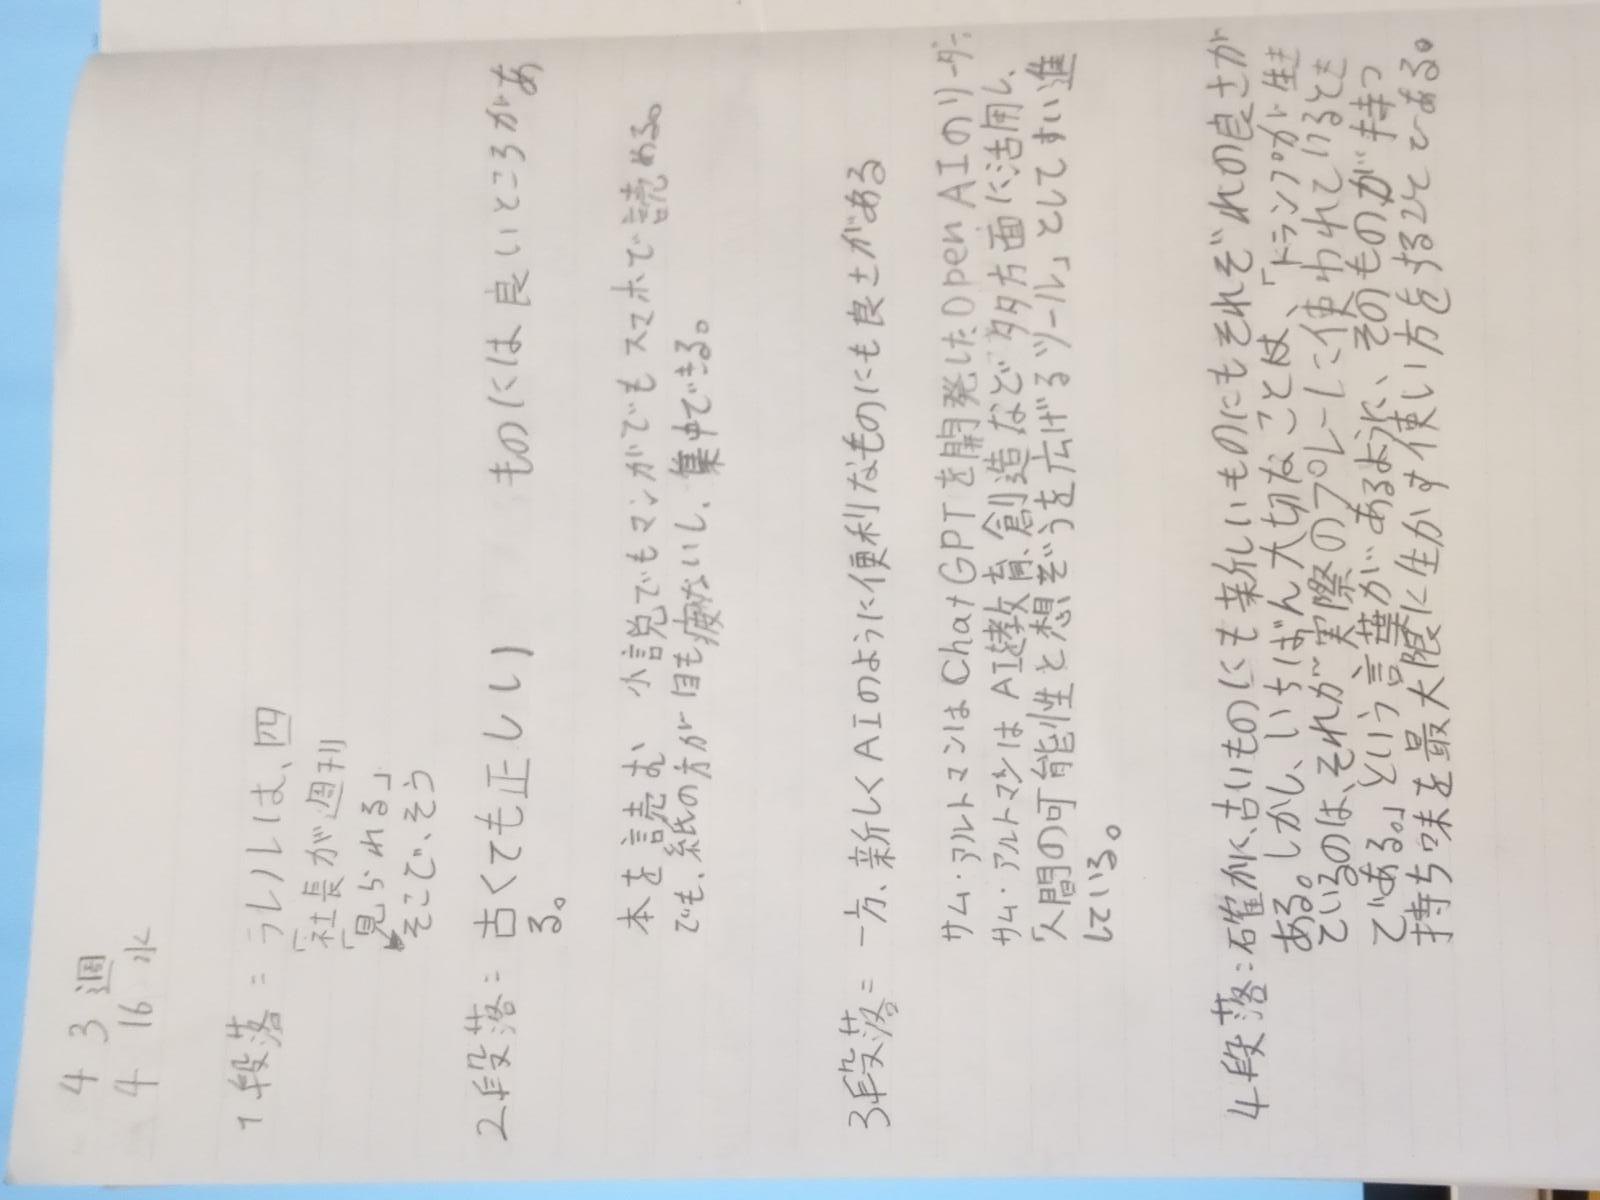 4 3 週
4 16 水
1段落=ラレルは、四
「社長が週刊
「見られる」
そこで、そう
2段落=古くても正しい ものには良いところがあ
る。
本を読む、小説でもマンガでもスマホで読める。
でも、紙の方が目も疲ないし、集中できる。
3段落=一方、新しくAIのように便利なものにも良さがある
サム・アルトマンはChatGPTを開発したOpenAIのリーダー
サム・アルトマンはAIを教育、創造など多方面に活用し、
「人間の可能性と想ぞうを広げるツール」としてすい進
している。
4段落=確かに、古いものにも新しいものにもそれぞれの良さが
ある。しかし、いちばん大切なことは、「トランプが生き
ているのは、それが実際のプレーに使われているとき
である。」という言葉があるように、そのものが持つ
持ち味を最大限に生かす使い方をすることである。